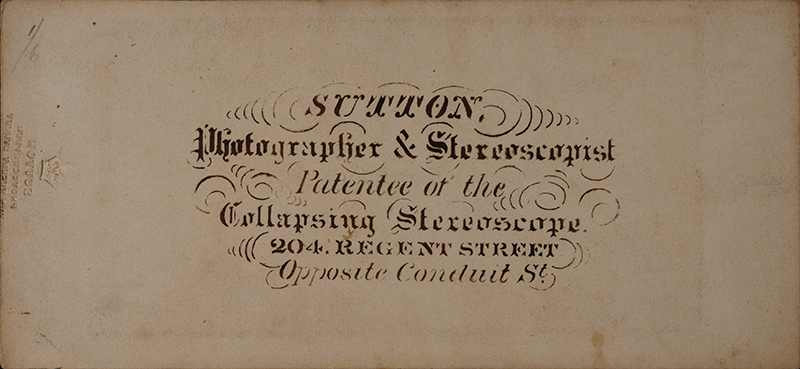 SUTTON.
Photographer & Stereoscopist
Patentee of the
Collapsing Stereoscope.
204. REGENT STREET
Opposite Conduit St.
1/6